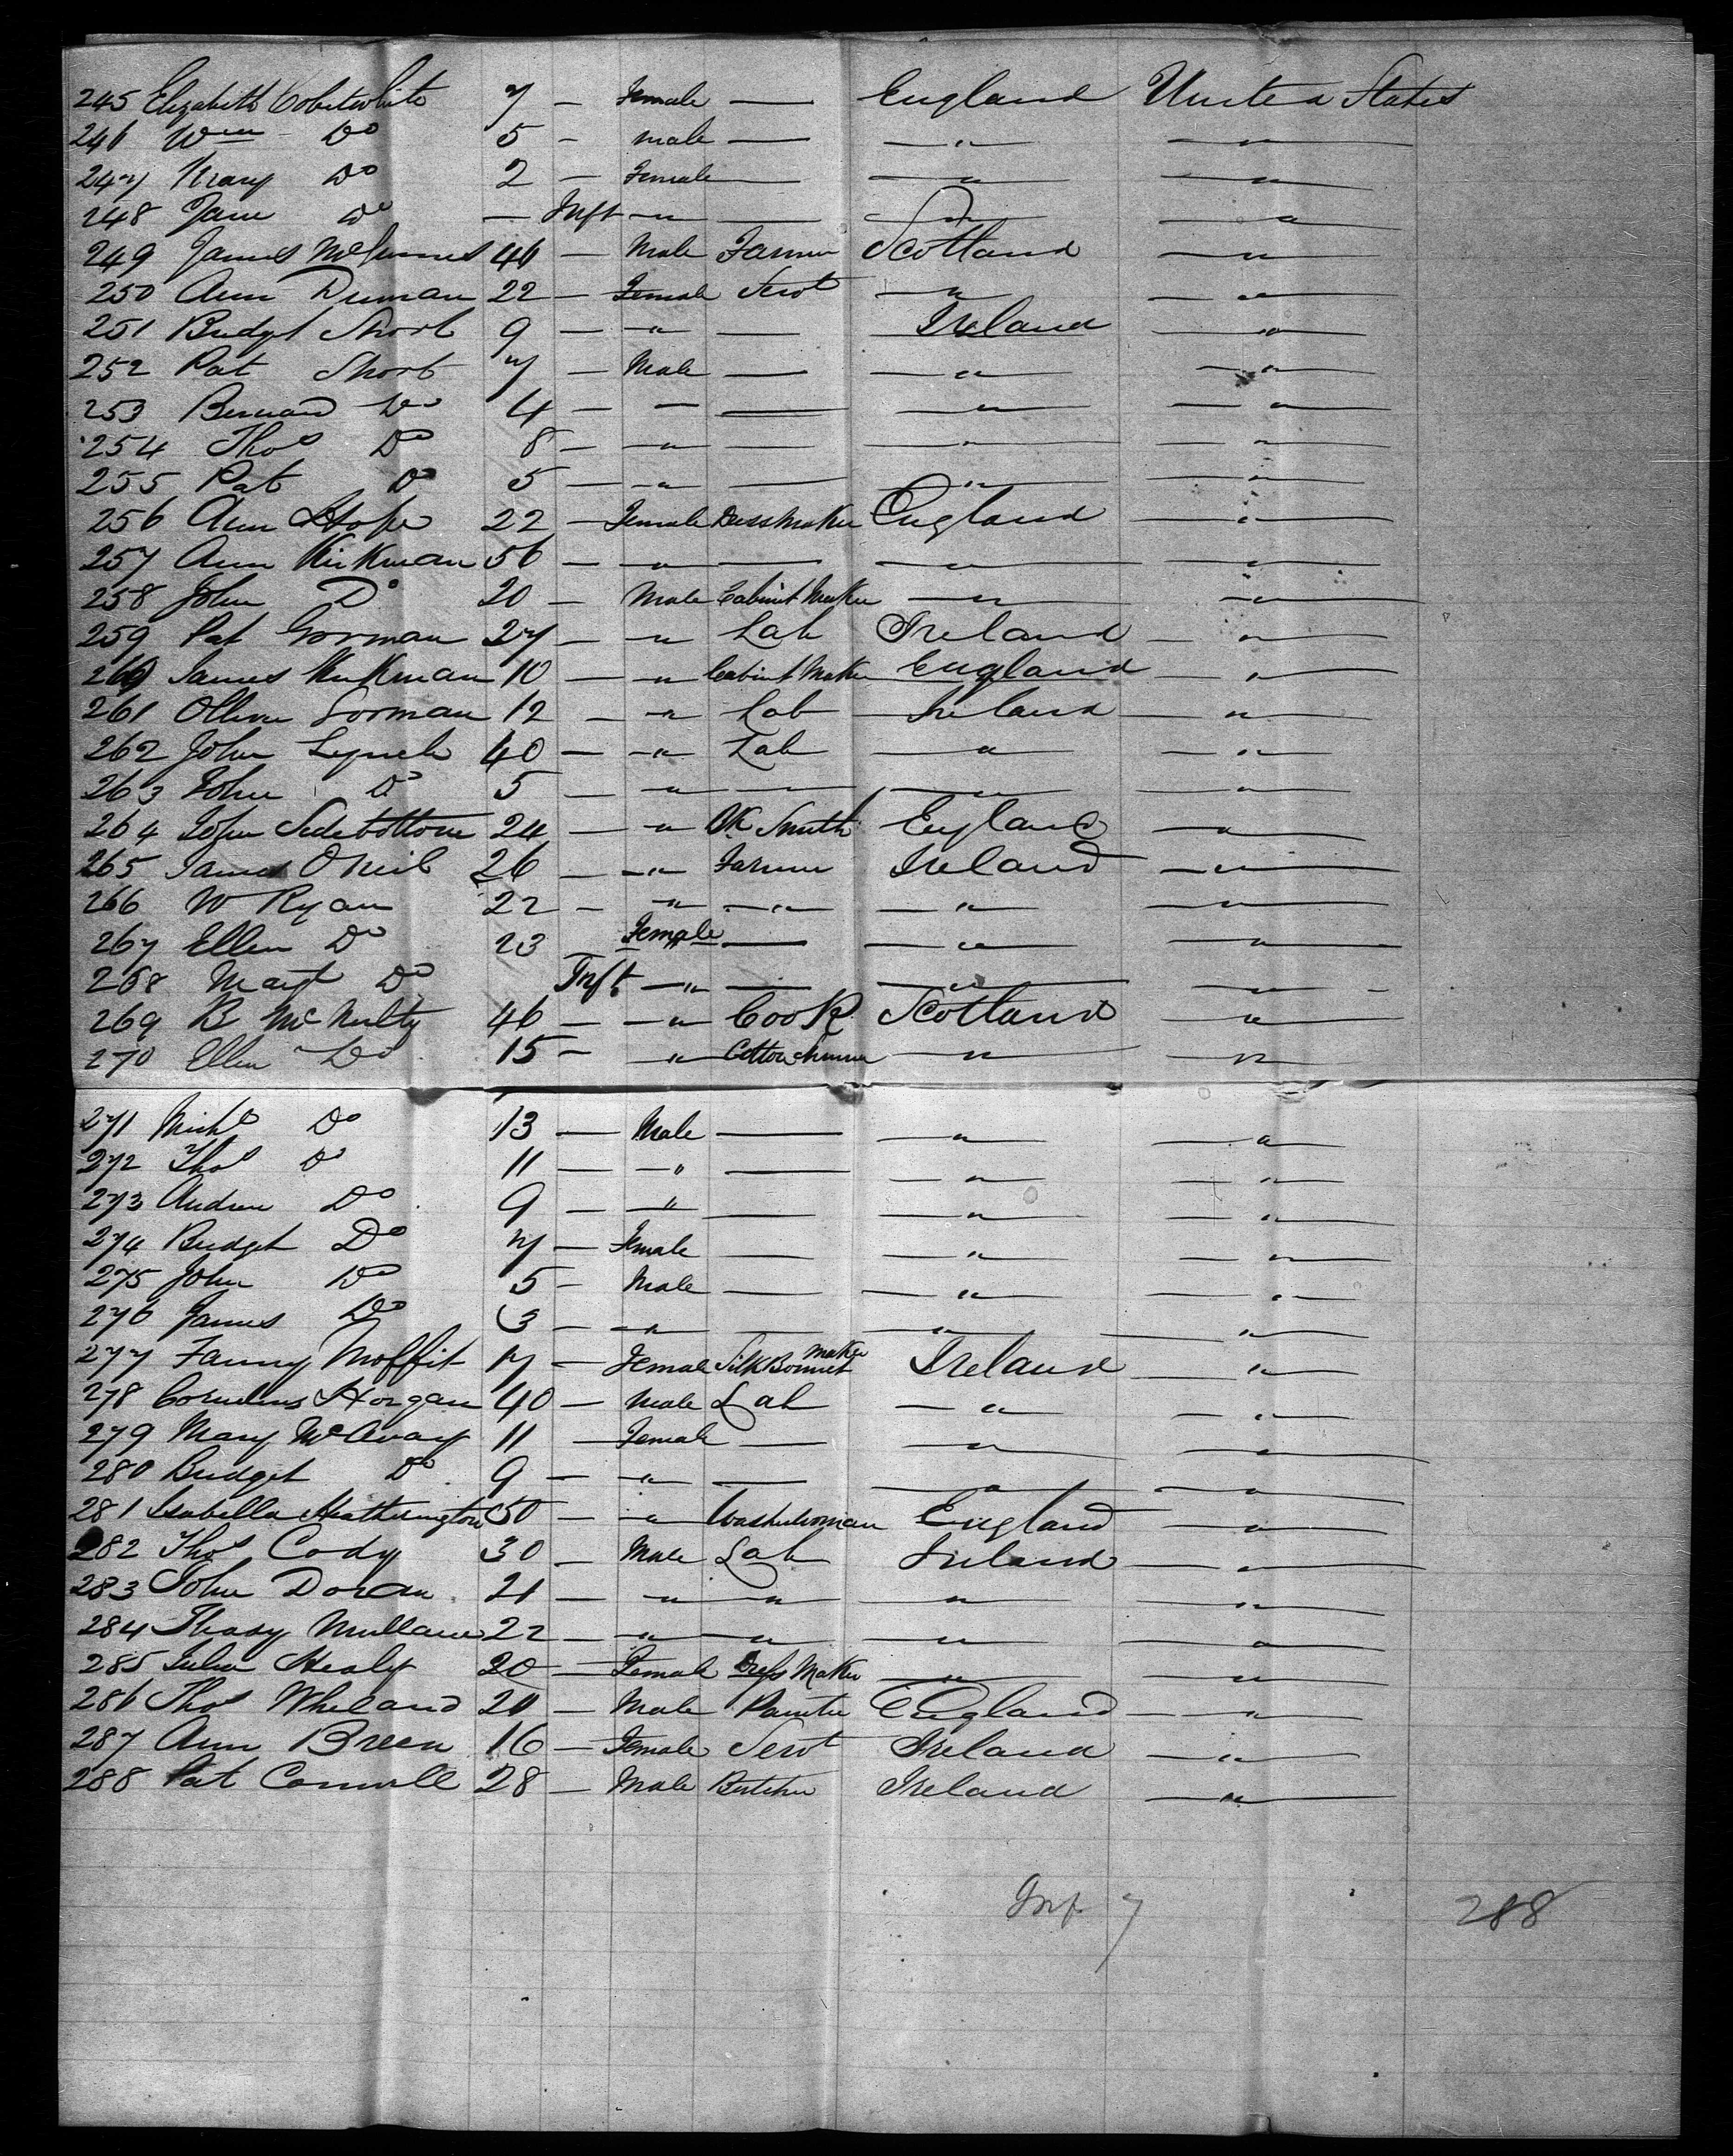 245 Elizabeth Cobetwhite 7 — Female — England United States
246 Wm Do 5 — male — — " — — " —
247 Mary Do 2 — Female — — " — — " —
248 Jane Do — Inft — " — — — " — — " —
249 James McInnes 46 — Male Farmer Scotland — " —
250 Ann Duman 22 — Female Servt — " — — " —
251 Bridgt Short 9 — — " — — Ireland — " —
252 Pat Short 7 — Male — — " — — " —
253 Bernard Do 4 — — " — — — " — — " —
254 Thos Do 8 — — " — — — " — — " —
255 Pat Do 5 — — " — — — " — — " —
256 Ann Hope 22 — Female Dressmaker England — " —
257 Ann Kirkman 56 — — " — — — " — — " —
258 John Do 20 — Male Cabinet Maker — " — — " —
259 Pat Gorman 27 — — " Lab Ireland — " —
260 James Kirkman 10 — — " Cabint Maker England — " —
261 Ollive Gorman 12 — — " — Lab Ireland — " —
262 John Lynch 40 — — " — Lab — " — — " —
263 John Do 5 — — " — — — " — — " —
264 John Sidebottom 24 — — " Bk Smith England — " —
265 James ONeil 26 — — " Farmer Ireland — " —
266 W Ryan 22 — — " — — " — — " — — " —
267 Ellen Do 23 Female — — " — — " —
268 Margt Do Inft. — " — — — " — — " —
269 B McNulty 46 — — " Cook Scotland — " —
270 Ellen Do 15 — " Cotton — " — "
271 Michl Do 13 — Male — — " — — " —
272 Thos Do 11 — — " — — " — — " —
273 Andrew Do 9 — — " — — — " — — " —
274 Bridget Do 7 — Female — — " — — " —
275 John Do 5 — Male — — " — — " —
276 James Do 3 — — " — — — " — — " —
277 Fanny Moffit 17 — Female Silk Bonnet maker Ireland — " —
278 Cornelius Horgan 40 — Male Lab — " — — " —
279 Mary McAvay 11 — Female — — " — — " —
280 Bridget Do 9 — — " — — — " — — " —
281 Isabella Heatherington 50 — — " Washwoman England — " —
282 Thos Cody 30 — Male Lab Ireland — " —
283 John Doran 21 — — " — — " — — " — — " —
284 Thady Mullane 22 — — " — — " — — " — — " —
285 Julia Healy 20 — Female Dress Maker — " — — " —
286 Thos Wheland 20 — Male Painter England — " —
287 Ann Breen 16 — Female Servt Ireland — " —
288 Pat Connell 28 — Male Butcher Ireland — " —
Inf. 7 288